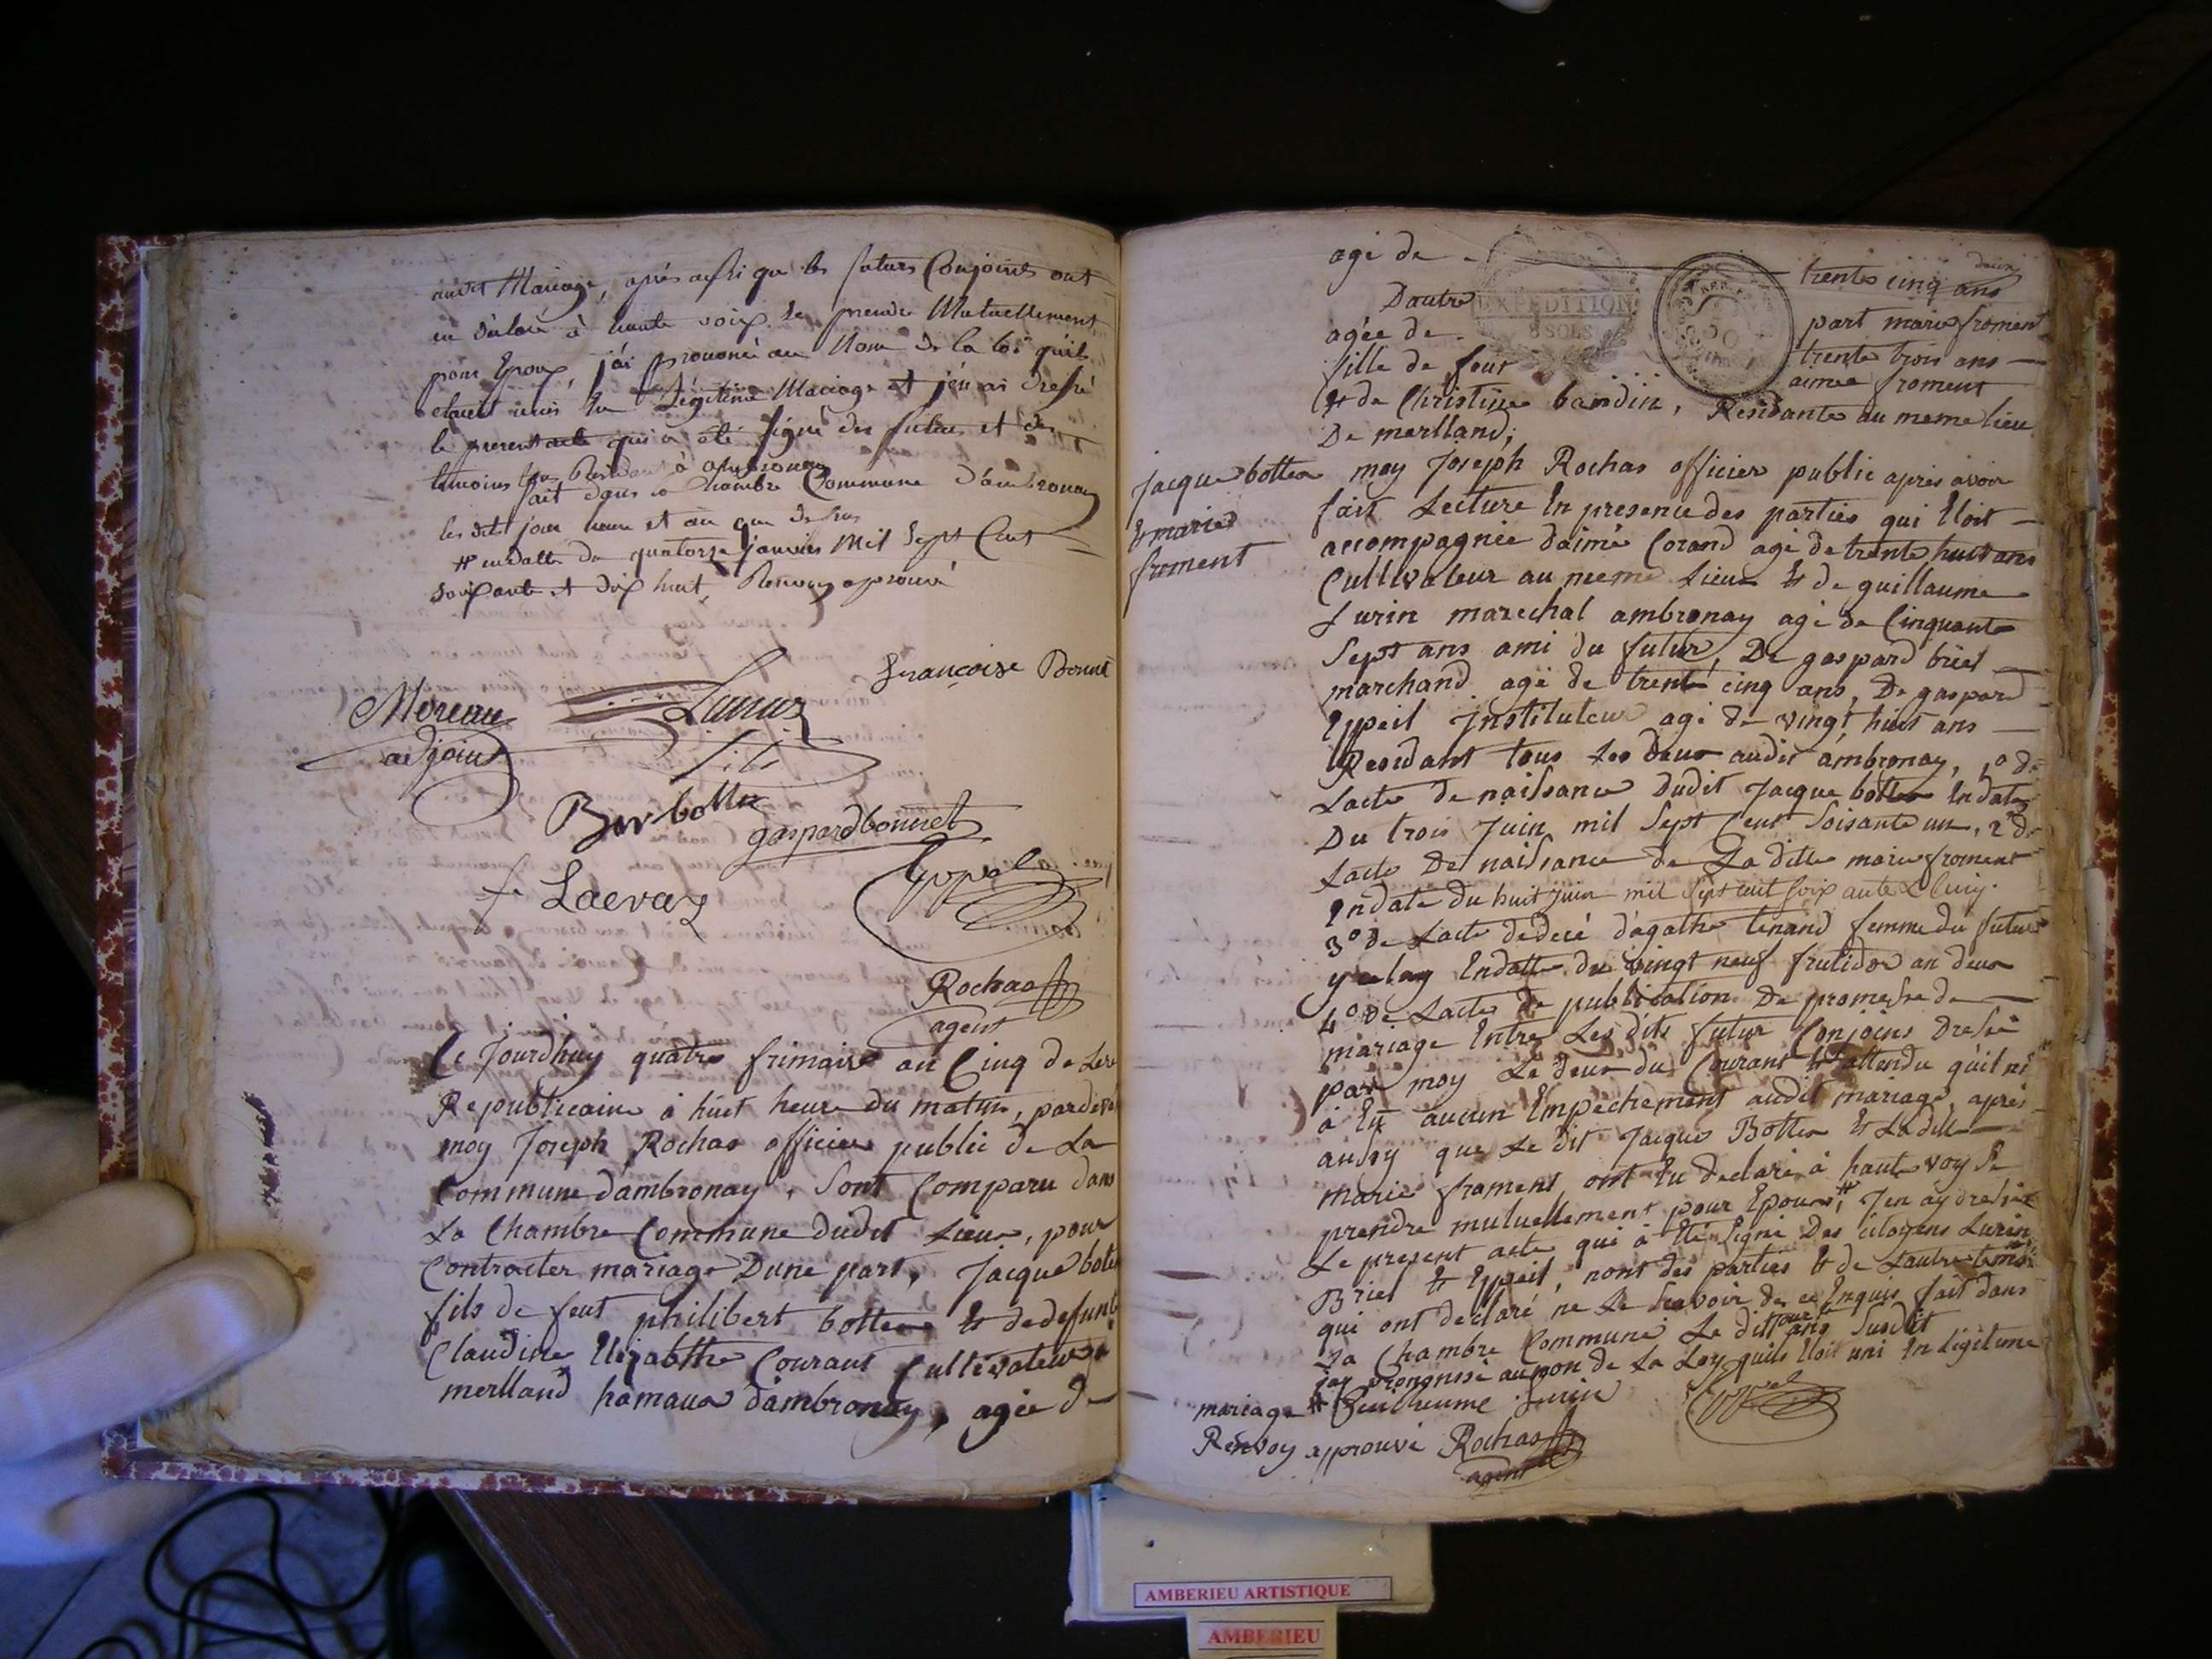 audit Mariage, après aussi que les futurs Conjoints ont
eu déclaré à haute voix se prendre Mutuellement
pour Epoux, j'ai prononcé au Nom de la loi qu'ils
etaient unis en Légitime Mariage et j'en ai dressé
le present acte qui a été signé des futurs et des
temoins tous Residant à ambronay
fait dans la Chambre Commune d'ambronay
les dits jour heure et an que dessus
# en datte du quatorze janvier Mil Sept Cent
soixante et dix huit, Renvoy aprouvé
françoise Bonnet
Moreau
adjoint
Lurin
fils
Bar botte
gaspard bonnet
Laevaz
Eypeil
Rochas
agent
Ce Jourdhuy quatre frimaire an Cinq de Lere
Republicaine à huit heure du matin, pardevé
moy Joseph Rochas officier public de La
Commune d'ambronay, Sont Comparu dans
La Chambre Commune dudit Lieu, pour
Contracter mariage Dune part, Jacque bote
fils de feut philibert bottex & de defunt
Claudine Elizabthe Courant Cultivateur a
merlland hamaux dambronay, agée d
agé de trente cinq ans
deux
Dautre part marie froment
agée de trente trois ans
EXPEDITION
8 SOLS
fille de feut aimee froment
& de Christine baudin, Residante au meme lieu
De merlland;
jacque bottex
& marie
froment
moy Joseph Rochas officier public après avoir
fait Lecture En presence des parties qui Etoit
accompagnée daimé Corand agé de trente huit ans
Cultivateur au meme Lieux & de guillaume
Lurin marechal ambronay agé de Cinquante
Sept ans ami du futur, De gaspard briel
marchand agé de trente cinq ans, De gaspard
Eypeil Jnstituteur agé de vingt huit ans
Residant tous Les deux audit ambronay, 1º de
Lacte de naissance dudit Jacque bottex En date
Du trois Juin mil Sept Cent Soisante un, 2º de
Lacte De naissance de La ditte marie froment
En date du huit juin mil sept cent soix ante & cinq.
3º de Lacte dedecé d'agathe tenand femme du futur
En datte du vingt neuf frutidor an deux
4º De Lacte de publication De promesse de
mariage Entre Les dits futur Conjoins dressé
par moy Le deux du Courant & attendu qu'il ni
à Eu aucun Empéchement audit mariage, après
aussy que Le dit Jacque Bottex & La ditte
marie froment ont Eu declaré à haute voy Se
prendre mutuellement pour Epoux, # J'en ay dressé
Le present acte qui à Eté signé Des citoyens Lurin
Briel & Eypeil, nont des parties & de Lautre temoi
qui ont déclaré ne Le Scavoir de ce Enquis fait dans
La Chambre Commune Le dit jour ans Susdit
jay prononsé au non de La Loy quils Etoit uni En Légitime
mariage # Guilheume Lurin Eypeil
Renvoy approuvé Rochas
agent
AMBERIEU ARTISTIQUE
AMBERIEU